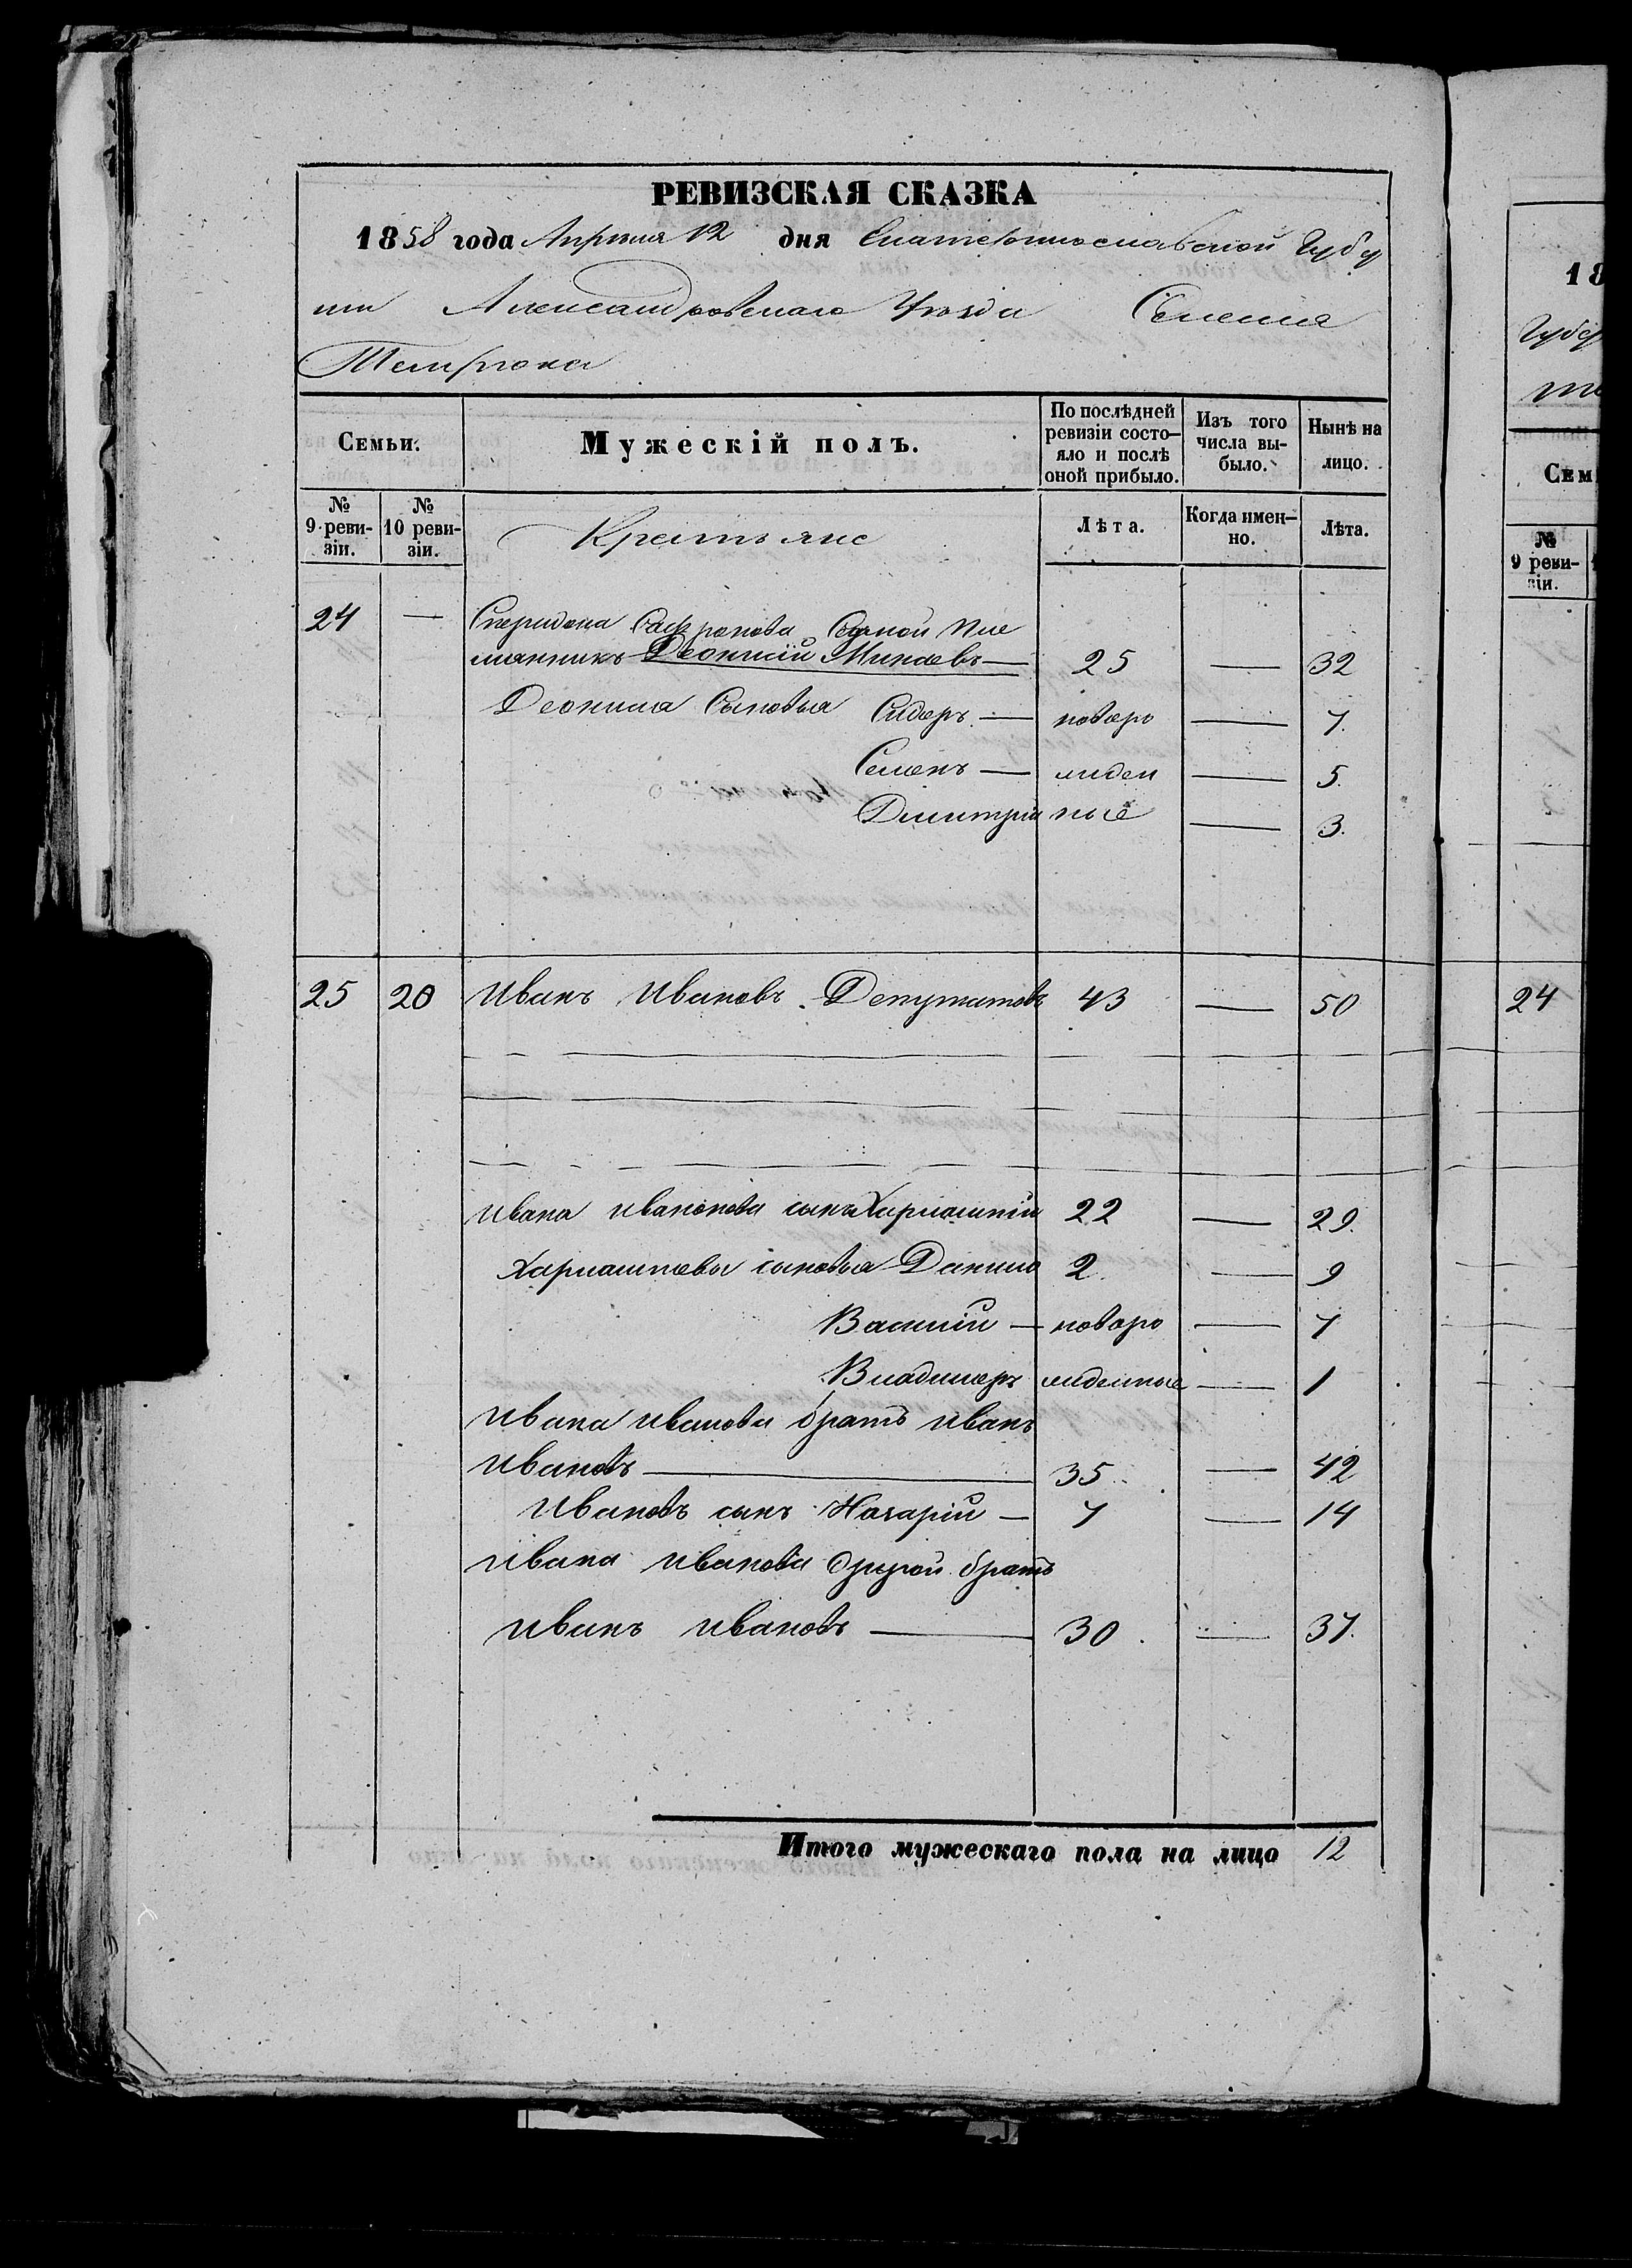 РЕВИЗСКАЯ СКАЗКА
1858 года Апреля 12 дня Екатеринославской Губер
нии Александровскаго Уезда Селения
Темрюка
Семьи.
Мужескій полъ.
По послѣдней ревизіи состо-яло и послѣ оной прибыло.
Изъ того числа вы-было.
Нынѣ на лицо.
№ 9 реви-зіи.
№ 10 реви-зіи.
Крестьяне
Лѣта.
Когда имен-но.
Лѣта.
24 — Спиридона Сафронова родной пле
мянникъ Деонисій Минаевъ — 25 — 32
Деониса сыновья Сидоръ — новоро — 7.
Семенъ — жден — 5.
Дмитрій ные — 3.
25 20 Иванъ Ивановъ Депутатовъ 43 — 50
Ивана Иванонова сынъ Харлампій 22 — 29.
Харлампіевы сыновья Данило 2. — 9
Василій — новоро — 7
Владимеръ жденные — 1
Ивана Иванова братъ Иванъ
Ивановъ — 35 — 42
Ивановъ сынъ Назарій — 7 — 14
Ивана Иванова другой братъ
Иванъ Ивановъ — 30 — 37.
Итого мужескаго пола на лицо 12
18
Губер
Сем
№ 9 реви-зіи.
24